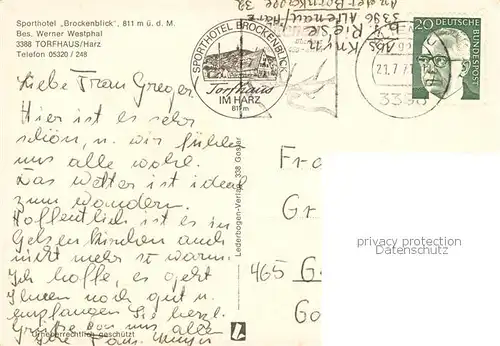 Sporthotel „Brockenblick", 811 m ü. d. M.
Bes. Werner Westphal
3388 TORFHAUS/Harz
Telefon 05320 / 248
Liebe Frau Greger
Hier ist es sehr
schön, u. wir fühlen
uns alle wohl.
Das Wetter ist ideal
zum wandern.
Hoffentlich ist es in
Gelsenkirchen auch
nicht mehr so warm.
Ich hoffe, es geht
Ihnen noch gut u.
empfangen Sie herzl.
Grüße von uns allen
Ihre Fam.
Urheberrechtlich geschützt
Lederbogen-Verlag, 338 Goslar
SPORTHOTEL BROCKENBLICK
Torfhaus
IM HARZ
811m
Abs.
3396 Altenau/Harz
21.7.7
3396
20
DEUTSCHE
BUNDESPOST
Fra
Gr
465 G
Go
privacy protection
Datenschutz